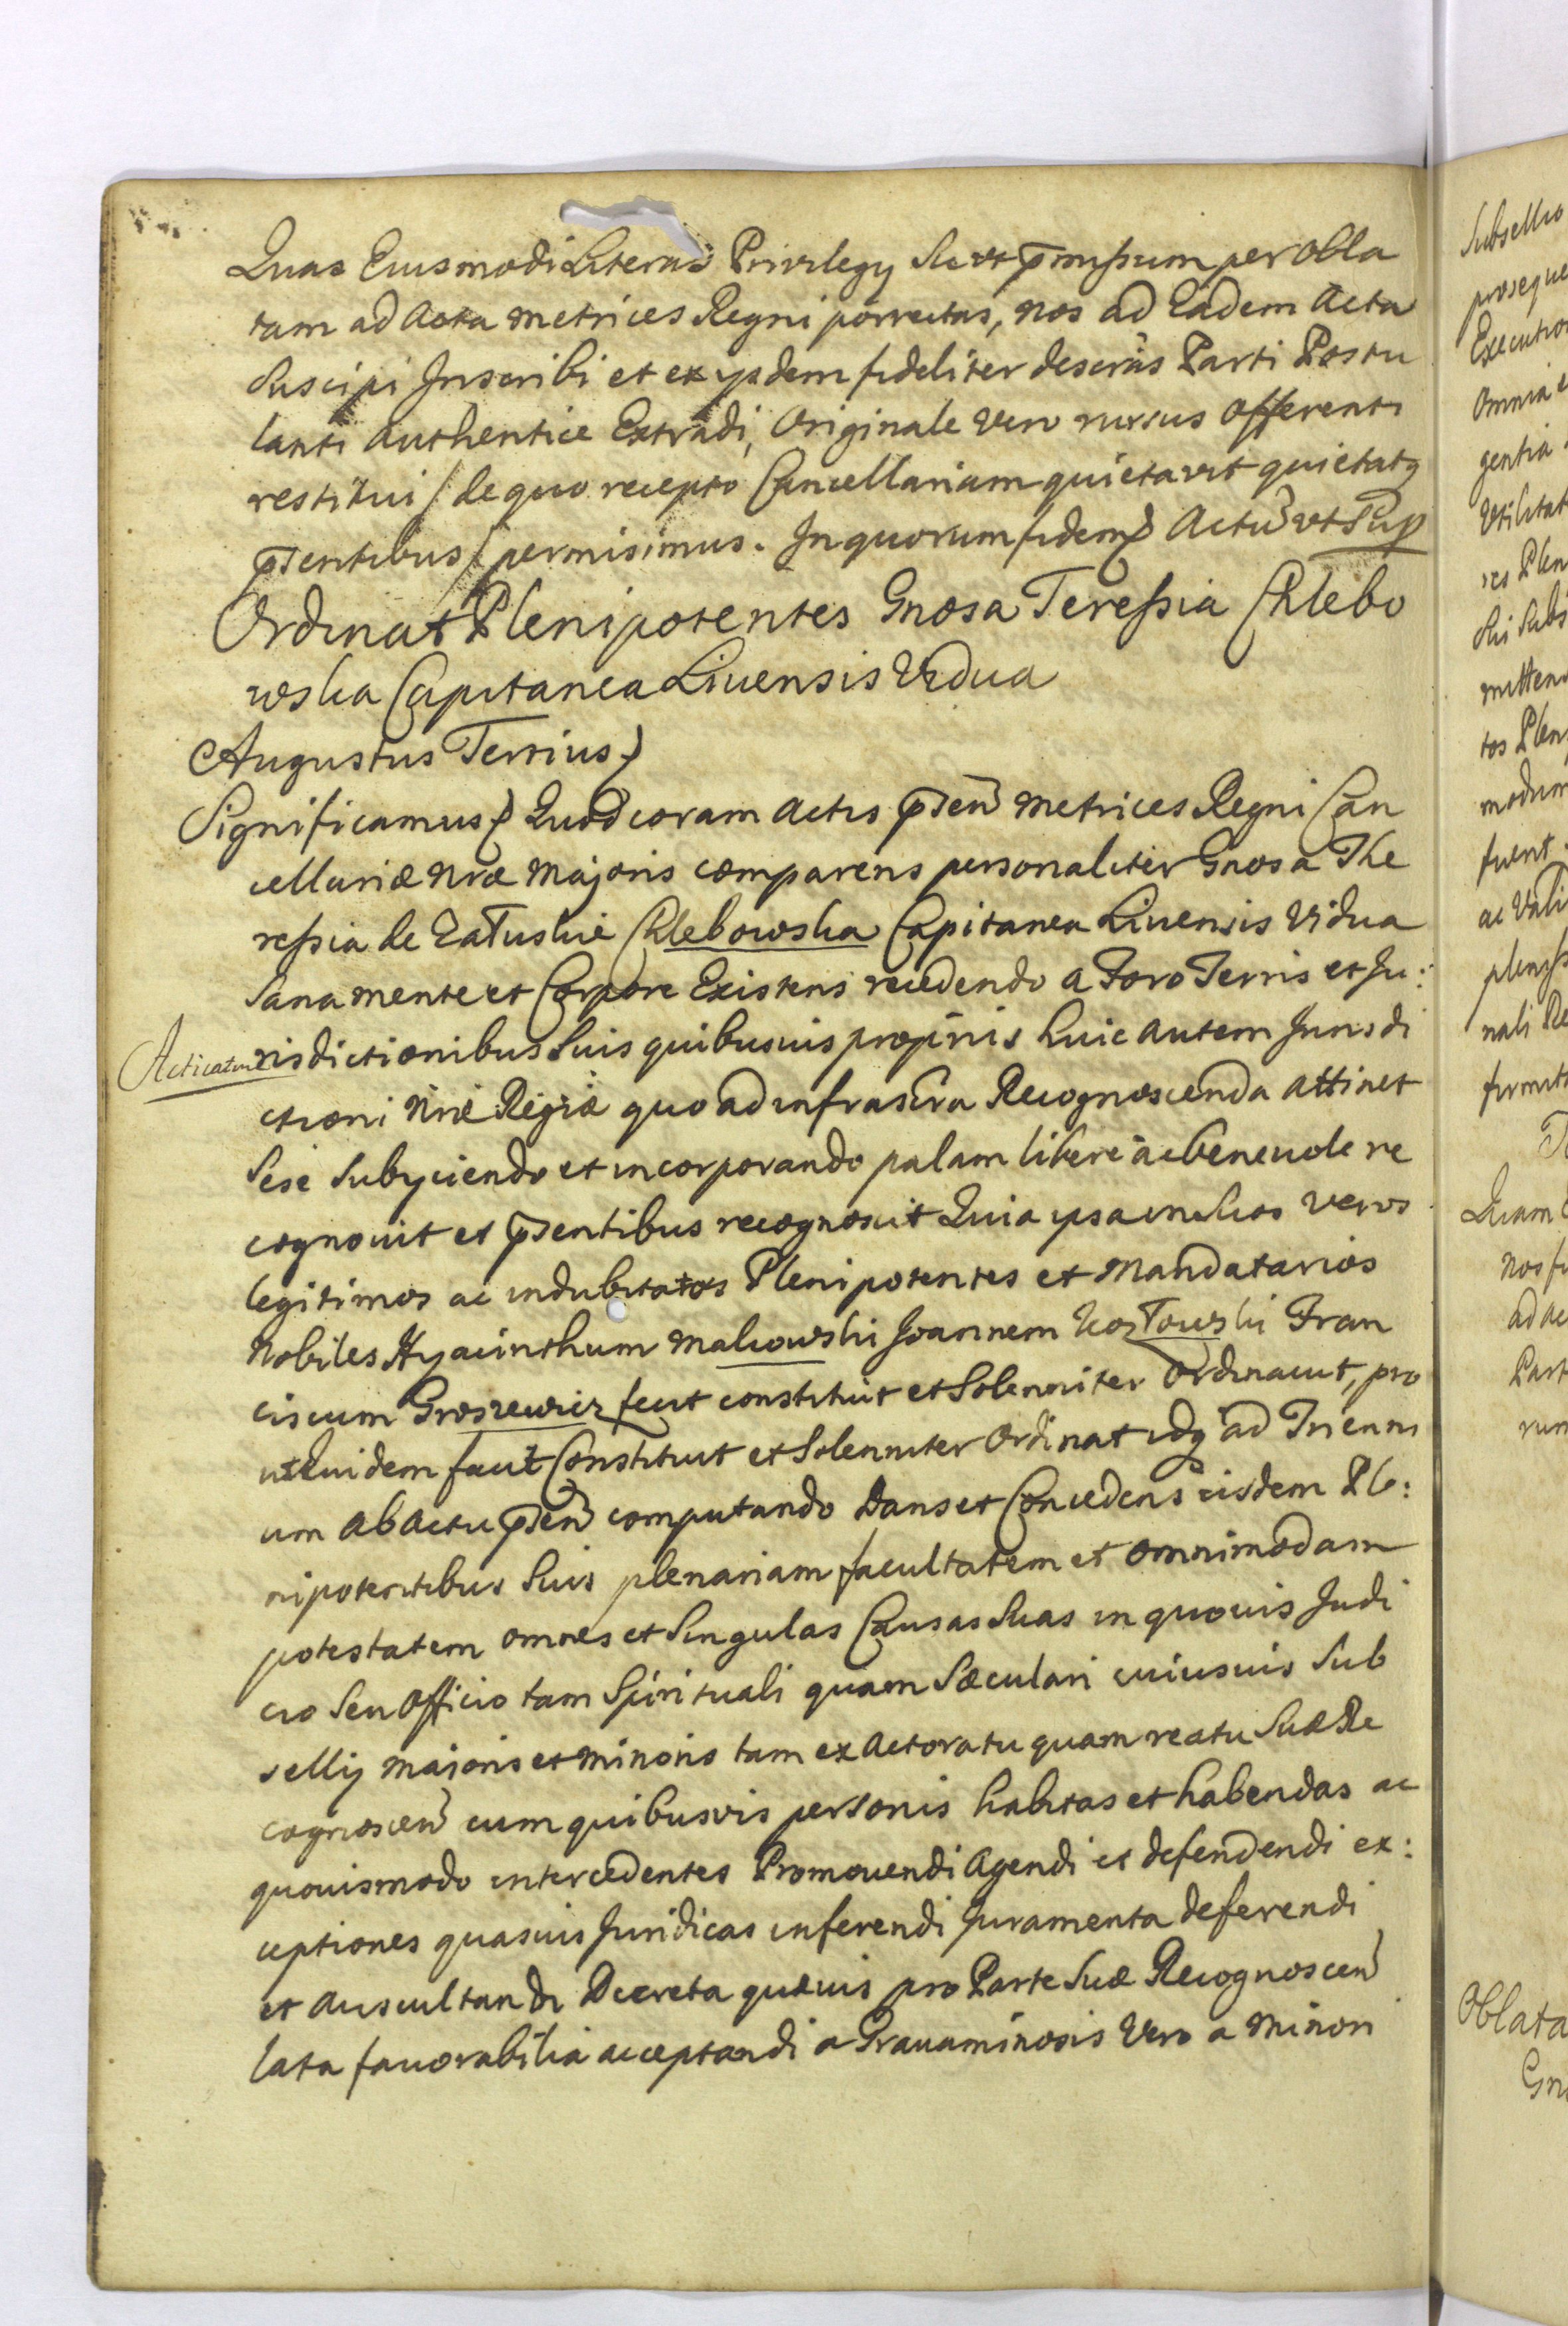 Quas Eiusmodi Literas Privilegy Sicut p̄missum per Obla
tam ad Acta Metrices Regni porrectas, nos ad Eadem Acta
Suscipi Inscribi et ex ysdem fideliter descrās Parti Postu
lanti Authentice Extradi, Originale Vero rursus Offerenti
restitui / de quo recepto Cancellariam quietavit quietatq
p̄sentibus / permisimus. In quorum fidem Actū ut Sup
Ordinat Plenipotentes Gnosa Teressia Chlebo
wska Capitanea Liuensis Vidua
Augustus Tertius
Significamus Quod coram Actis p̄sen̄ Metrices Regni Can
cellariæ Nræ Majoris comparens personaliter Gnosa The
ressia de Załuskie Chlebowska Capitanea Liuensis Vidua
Sana mente et Corpore Existens recedendo a Foro Terris et Ju:
Acticatum
risdictionibus Suis quibusuis proprijs huic autem Jurisdi
ctioni Nræ Regiæ quo ad infrascra Recognoscenda attinet
Sese Subyciendo et incorporando palam libere ac beneuole re
cognouit et p̄sentibus recognoscit Quia ipsa in Suos veros
legitimos ac indubitatos Plenipotentes et Mandatarios
Nobiles Hyacinthum Malcowski Joannem Kozłowski Fran
ciscum Groszewicz fecit constituit et Solenniter Ordinauit, pro
ut Quidem facit Constituit et Solenniter Ordinat idq ad Trienni
um ab Actu p̄sen̄ computando Dans et Concedens eisdem Ple:
nipotentibus Suis plenariam facultatem et omnimodam
potestatem omnes et Singulas Causas Suas in quouis Judi
cio Seu Officio tam Spirituali quam Sæculari cuiusuis Sub
sellij Majoris et Minoris tam ex Actoratu quam reatu Suæ Re
cognoscen̄ cum quibusvis personis habitas et habendas ac
quouismodo intercedentes Promouendi Agendi et defendendi ex:
ceptiones quasuis Juridicas inferendi Juramenta deferendi
et auscultandi Decreta quæuis pro Parte Suæ Recognoscen̄
lata fauorabilia acceptandi a Grauaminosis Vero a Minori
Subsellio
proseque
Executio
Omnia
gentia
Utilitat
res Plen
Sui Subs
mitten
tos Plen
modum
fuerit
ac Vali
nali Re
Quam
nos
ad ac
Part
rum
Oblata